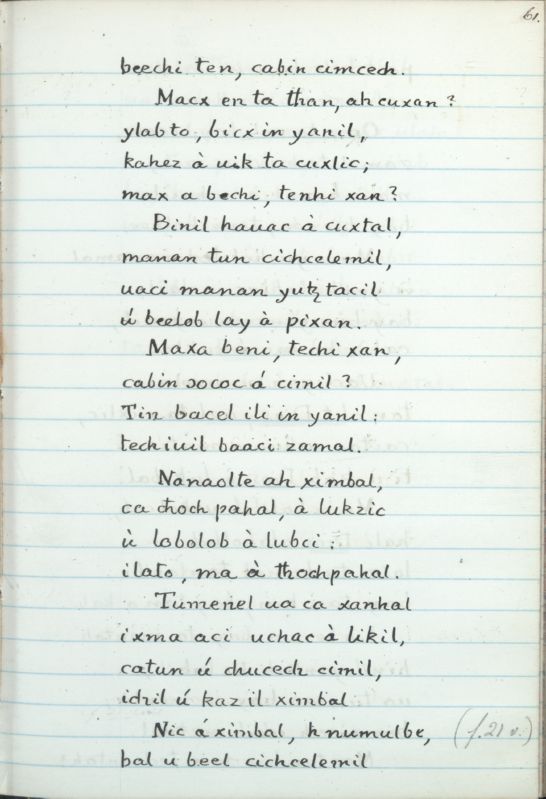 61.
beechi ten, cabin cimcech.
Macx en ta than, ah cuxan?
ylabto, bicx in yanil,
kahez à uik ta cuxlic;
max a bechi, tenhi xan?
Binil hauac à cuxtal,
manan tun cichcelemil,
uaci manan yutz tacil
ú beelob lay à pixan.
Maxa beni, techi xan,
cabin ɔococ á cimil?
Tin bacel ili in yanil:
techiuil baaci zamal.
Nanaolte ah ximbal,
ca choch pahal, à lukzic
ù lobolob à lubci:
ilato, ma à thochpahal.
Tumenel ua ca xanhal
ixma aci uchac à likil,
catun ú chucech cimil,
ichil ú kaz il ximbal
Nic á ximbal, h numulbe, (f. 21 v.)
bal u beel cichcelemil